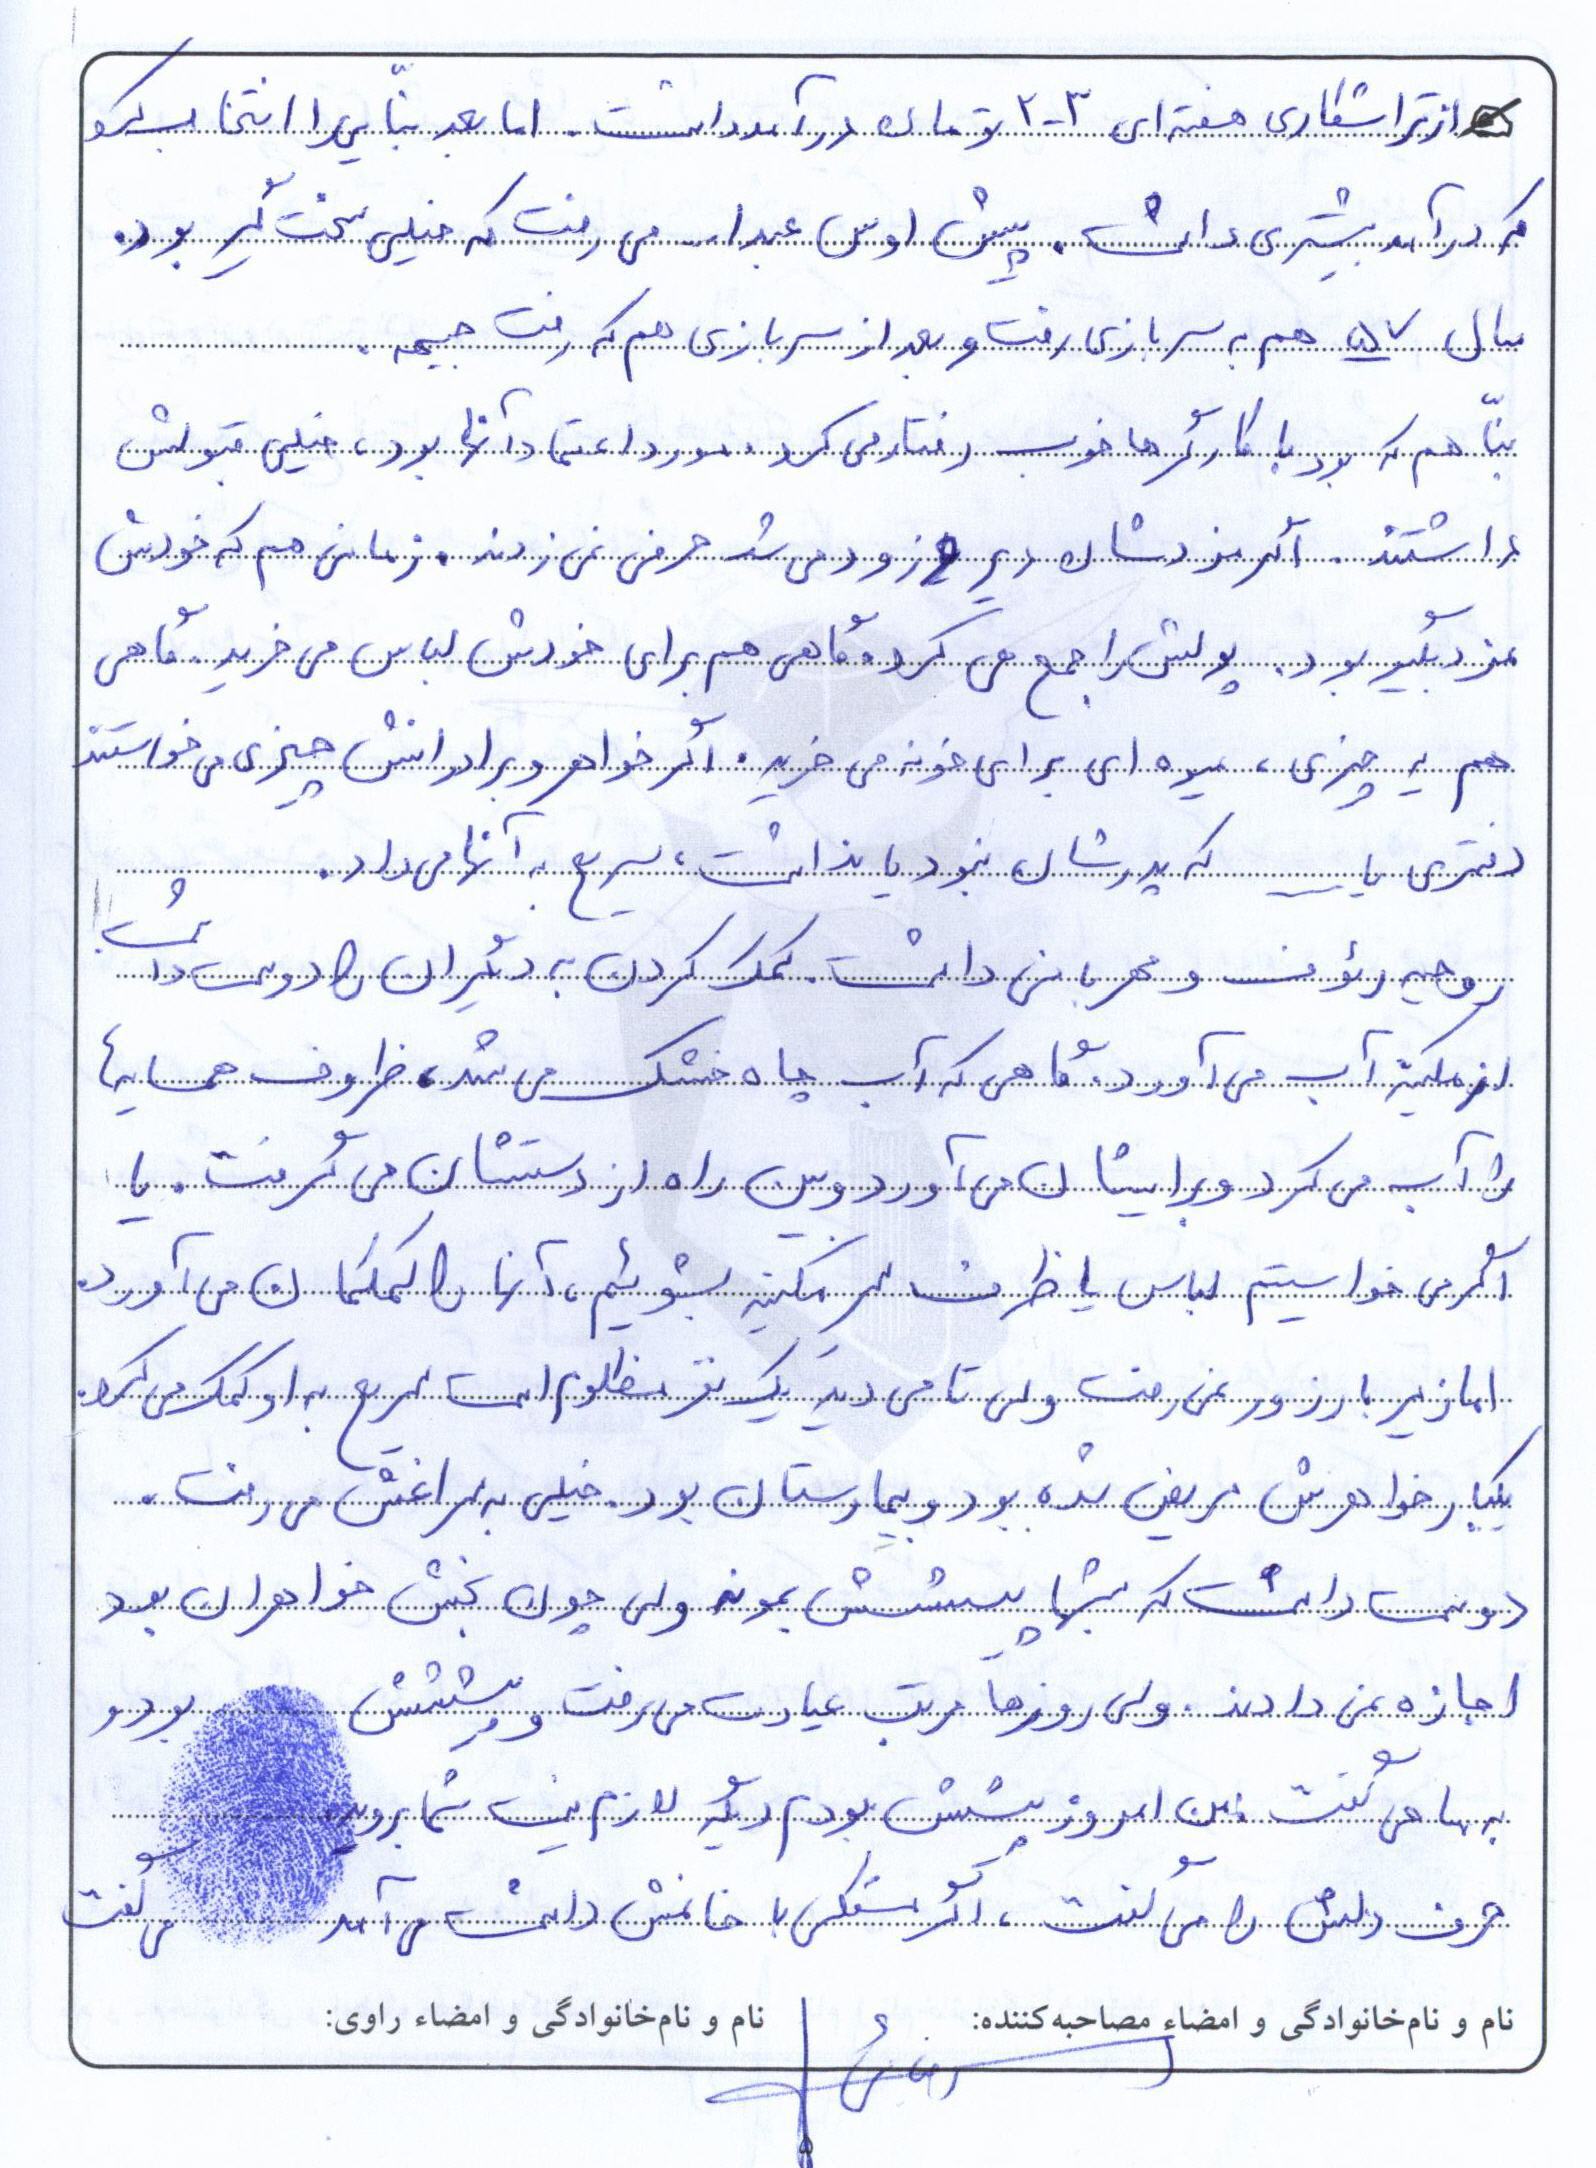 از تراشکاری هفته‌ای ۳-۲ تومان درآمد داشت. اما بعد بنّایی را انتخاب کرد
که درآمد بیشتری داشت. پیش اوس عبداله می رفت که خیلی سخت گیر بود.
سال ۵۷ هم به سربازی رفت و بعد از سربازی هم که رفت جبهه.
بنّا هم که بود با کارگرها خوب رفتار می کرد. مورد اعتماد آنها بود، خیلی قبولش
داشتند. اگر مزدشان دیر و زود می شد حرفی نمی زدند. زمانی هم که خودش
مزد بگیر بود. پولش را جمع می کرد. گاهی هم برای خودش لباس می خرید. گاهی
هم یه چیزی، میوه ای برای خونه می خرید. اگر خواهر و برادرانش چیزی می خواستند
دفتری یا ..... که پدرشان نبود یا نداشت، سریع به آنها می داد.
روحیه رئوف و مهربانی داشت. کمک کردن به دیگران را دوست داشت
از مکینه آب می آورد. گاهی که آب چاه خشک می شد، ظروف همسایه ها
را آب می کرد و برایشان می آورد و بین راه از دستشان می گرفت. یا
اگر می خواستیم لباس یا ظرف سر مکینه بشوئیم، آنها را کمکمان می آورد.
اما زیر بار زور نمی رفت ولی تا می دید یک نفر مظلوم است سریع به او کمک می کرد.
یکبار خواهرش مریض شده بود و بیمارستان بود. خیلی به سراغش می رفت.
دوست داشت که شبها پیشش بمونه ولی چون بخش خواهران بود
اجازه نمی دادند. ولی روزها مرتب عیادت می رفت و پیشش بود و
به ما می گفت من امروز پیشش بودم دیگه لازم نیست شما بروید
حرف دلش را می گفت، اگر مشکلی با خانمش داشت می آمد می گفت
نام و نام‌خانوادگی و امضاء مصاحبه‌کننده: نام و نام‌خانوادگی و امضاء راوی: